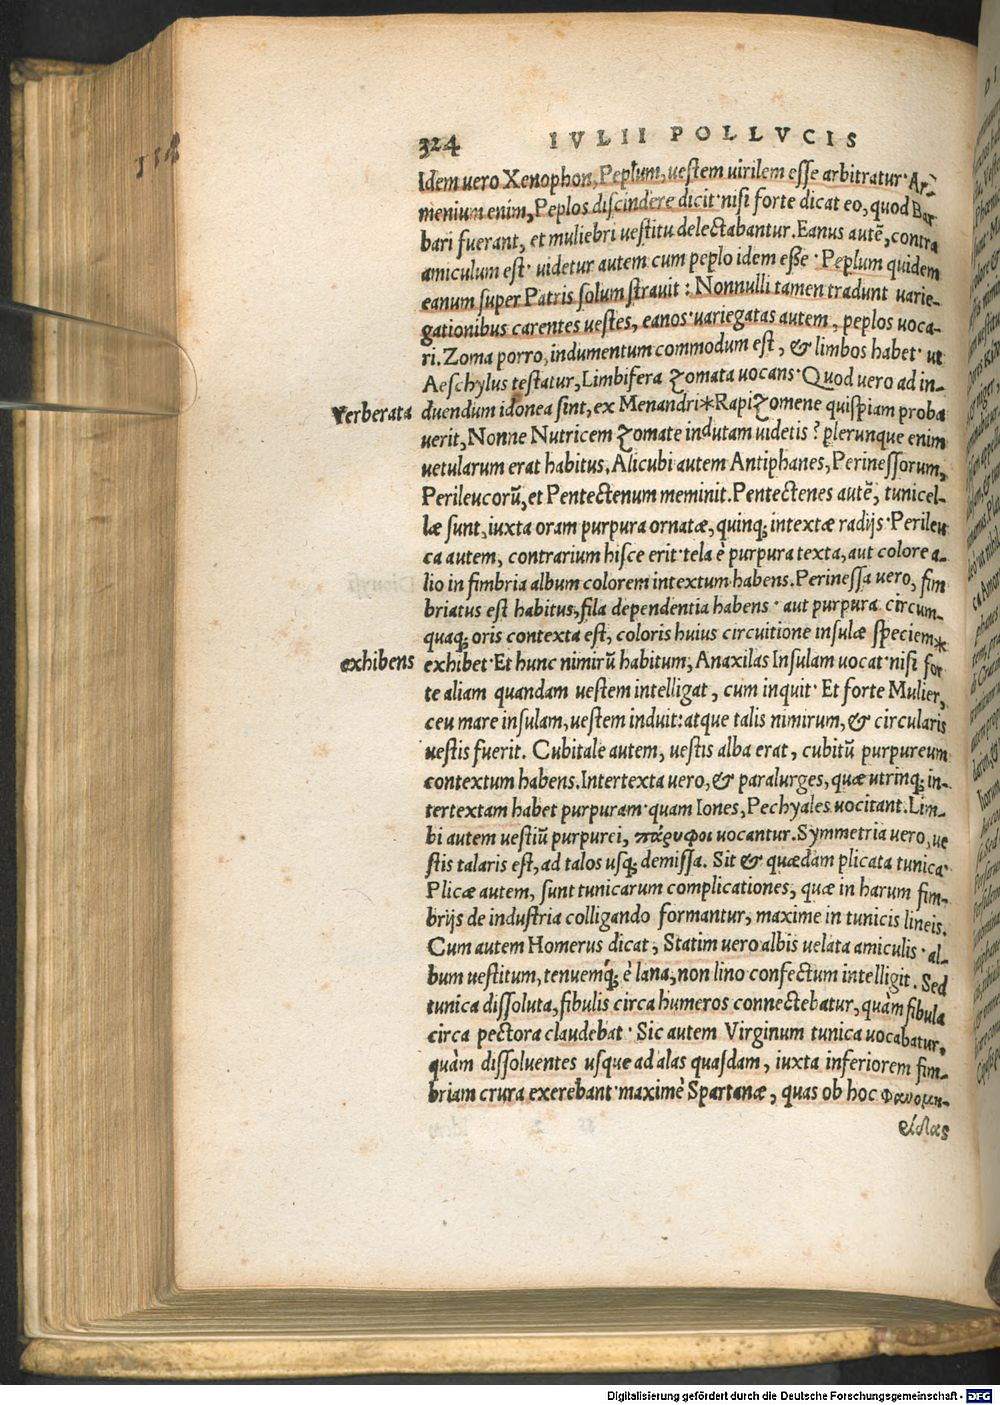 324 IVLII POLLVCIS
Idem uero Xenophon, Peplum, uestem uirilem esse arbitratur· Ar-
menium enim, Peplos discindere dicit· nisi forte dicat eo, quod Bar
bari fuerant, et muliebri uestitu delectabantur. Eanus autē, contra
amiculum est· uidetur autem cum peplo idem esse· Peplum quidem
eanum super Patris solum strauit: Nonnulli tamen tradunt uarie-
gationibus carentes uestes, eanos· uariegatas autem, peplos uoca-
ri. Zoma porro, indumentum commodum est, & limbos habet· ut
Aeschylus testatur, Limbifera Zomata uocans· Quod uero ad in-
Verberata duendum idonea sint, ex Menandri*RapiZomene quispiam proba
uerit, Nonne Nutricem Zomate indutam uidetis? plerunque enim
uetularum erat habitus, Alicubi autem Antiphanes, Perinessorum,
Perileucorū, et Pentectenum meminit. Pentectenes autē, tunicel-
læ sunt, iuxta oram purpura ornatæ, quinq; intextæ radijs· Perileu
ca autem, contrarium hisce erit· tela è purpura texta, aut colore a-
lio in fimbria album colorem intextum habens. Perinessa uero, fim
briatus est habitus, fila dependentia habens· aut purpura circum-
quaq; oris contexta est, coloris huius circuitione insulæ speciem*
exhibens exhibet· Et hunc nimirū habitum, Anaxilas Insulam uocat· nisi for
te aliam quandam uestem intelligat, cum inquit· Et forte Mulier,
ceu mare insulam, uestem induit: atque talis nimirum, & circularis
uestis fuerit. Cubitale autem, uestis alba erat, cubitū purpureum
contextum habens. Intertexta uero, & paralurges, quæ utrinq; in-
tertextam habet purpuram· quam Iones, Pechyales uocitant. Lim-
bi autem uestiū purpurei, πάρυφοι uocantur. Symmetria uero, ue
stis talaris est, ad talos usq; demissa. Sit & quædam plicata tunica·
Plicæ autem, sunt tunicarum complicationes, quæ in harum fim-
brijs de industria colligando formantur, maxime in tunicis lineis.
Cum autem Homerus dicat, Statim uero albis uelata amiculis· al-
bum uestitum, tenuemq́; è lana, non lino confectum intelligit. Sed
tunica dissoluta, fibulis circa humeros connectebatur, quàm fibula
circa pectora claudebat· Sic autem Virginum tunica uocabatur,
quàm dissoluentes usque ad alas quasdam, iuxta inferiorem fim-
briam crura exerebant· maximè Spartanæ, quas ob hoc φαινομη-
είδας
Digitalisierung gefördert durch die Deutsche Forschungsgemeinschaft - DFG